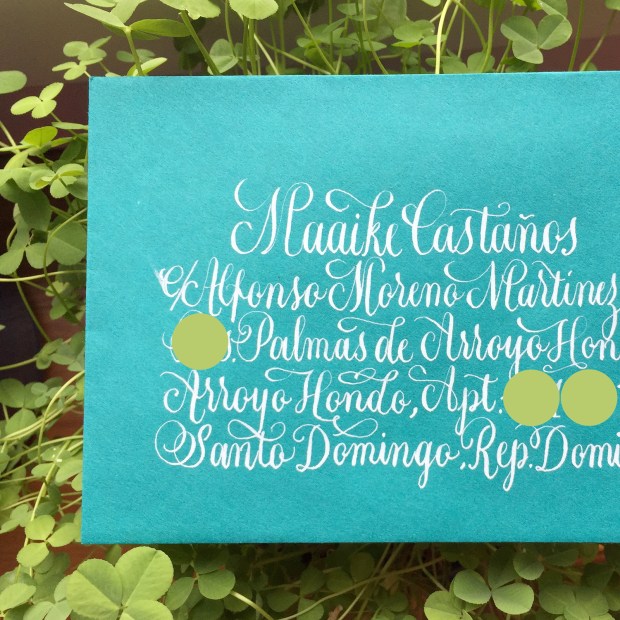 Maaike Castaños
C/Alfonso Moreno Martínez
Palmas de Arroyo Hon
Arroyo Hondo, Apt.
Santo Domingo, Rep. Domi